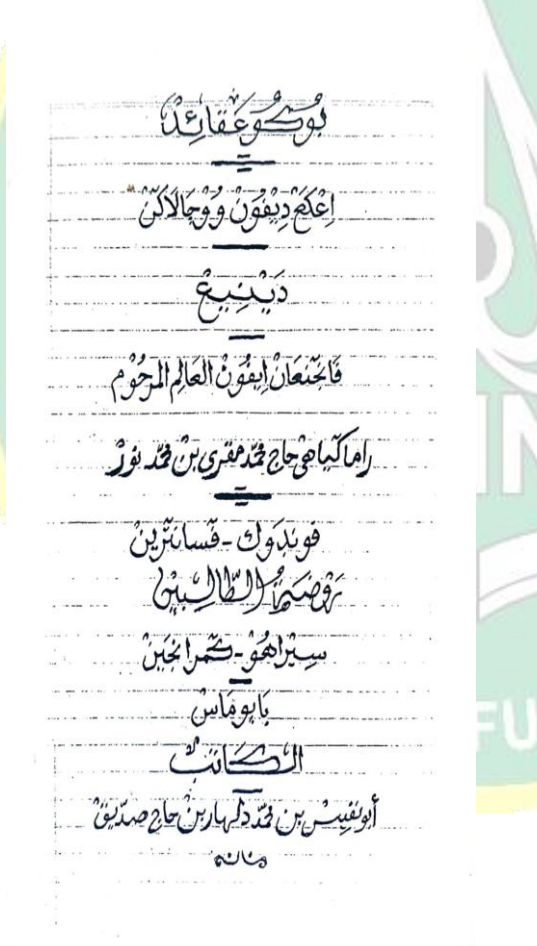 بُوكُو عَقَائِدْ
اِڠْكَڠْ دِيْفُونْ وُوْجَالَاكَنْ
دَيْنِيڠْ
فَانجَنَڠَانْ اِيفُونْ العَالِم المَرحُوْم
راما كياهي حاج محمّد مقرى بن محمّد نورْ
فوندوك - فسانترين
رَوْضَةُ الطَّالِبِيْن
سِيْرَاهُوْ - كمرانجَينْ
بَايُومَاسْ
الكَاتِبُ
أبو نفيس بن محمّد دلهار بن حاج صدّيق
FU